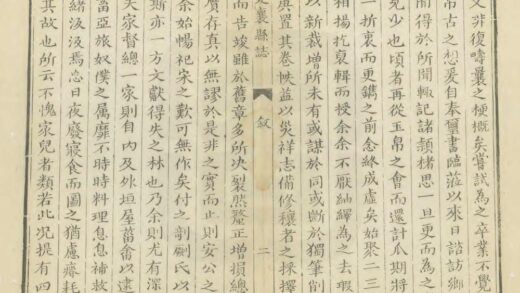 又非復疇曩之梗概矣嘗試為之卒業不覺
弔古之想爰自奉璽書臨蒞以來日諮訪鄉
間得於所聞輒記諸頪楮思一旦更而為之
兒少也頃者再從玉帛之會而還計瓜期將
一折衷而更鐫之前念終成虛矣始聚二三
相揚扢裒輯而授余余不厭紬繹為之去瑕
以新裁增所未有或謀於同或斷於獨筆削
與置其卷帙益以災祥志備修穰者之採擇
襄縣誌
敘
二
而告竣雖於舊章多所決裂然釐正增損總
贋存真以無謬於是非之實而止則安公之
余始暢杞宋之歎可無作矣付之剞劂氏以
斯亦一方文獻得失之林也乃余則尤有深
夫家督總一家則自內及外垣屋菑畬以逮
畜亞旅奴僕之屬靡不時時料理息息補救
緒汲汲焉忘日夜廢寢食而圖之猶慮瘠耗
其故也所云不愧家兒者類若此况提有四